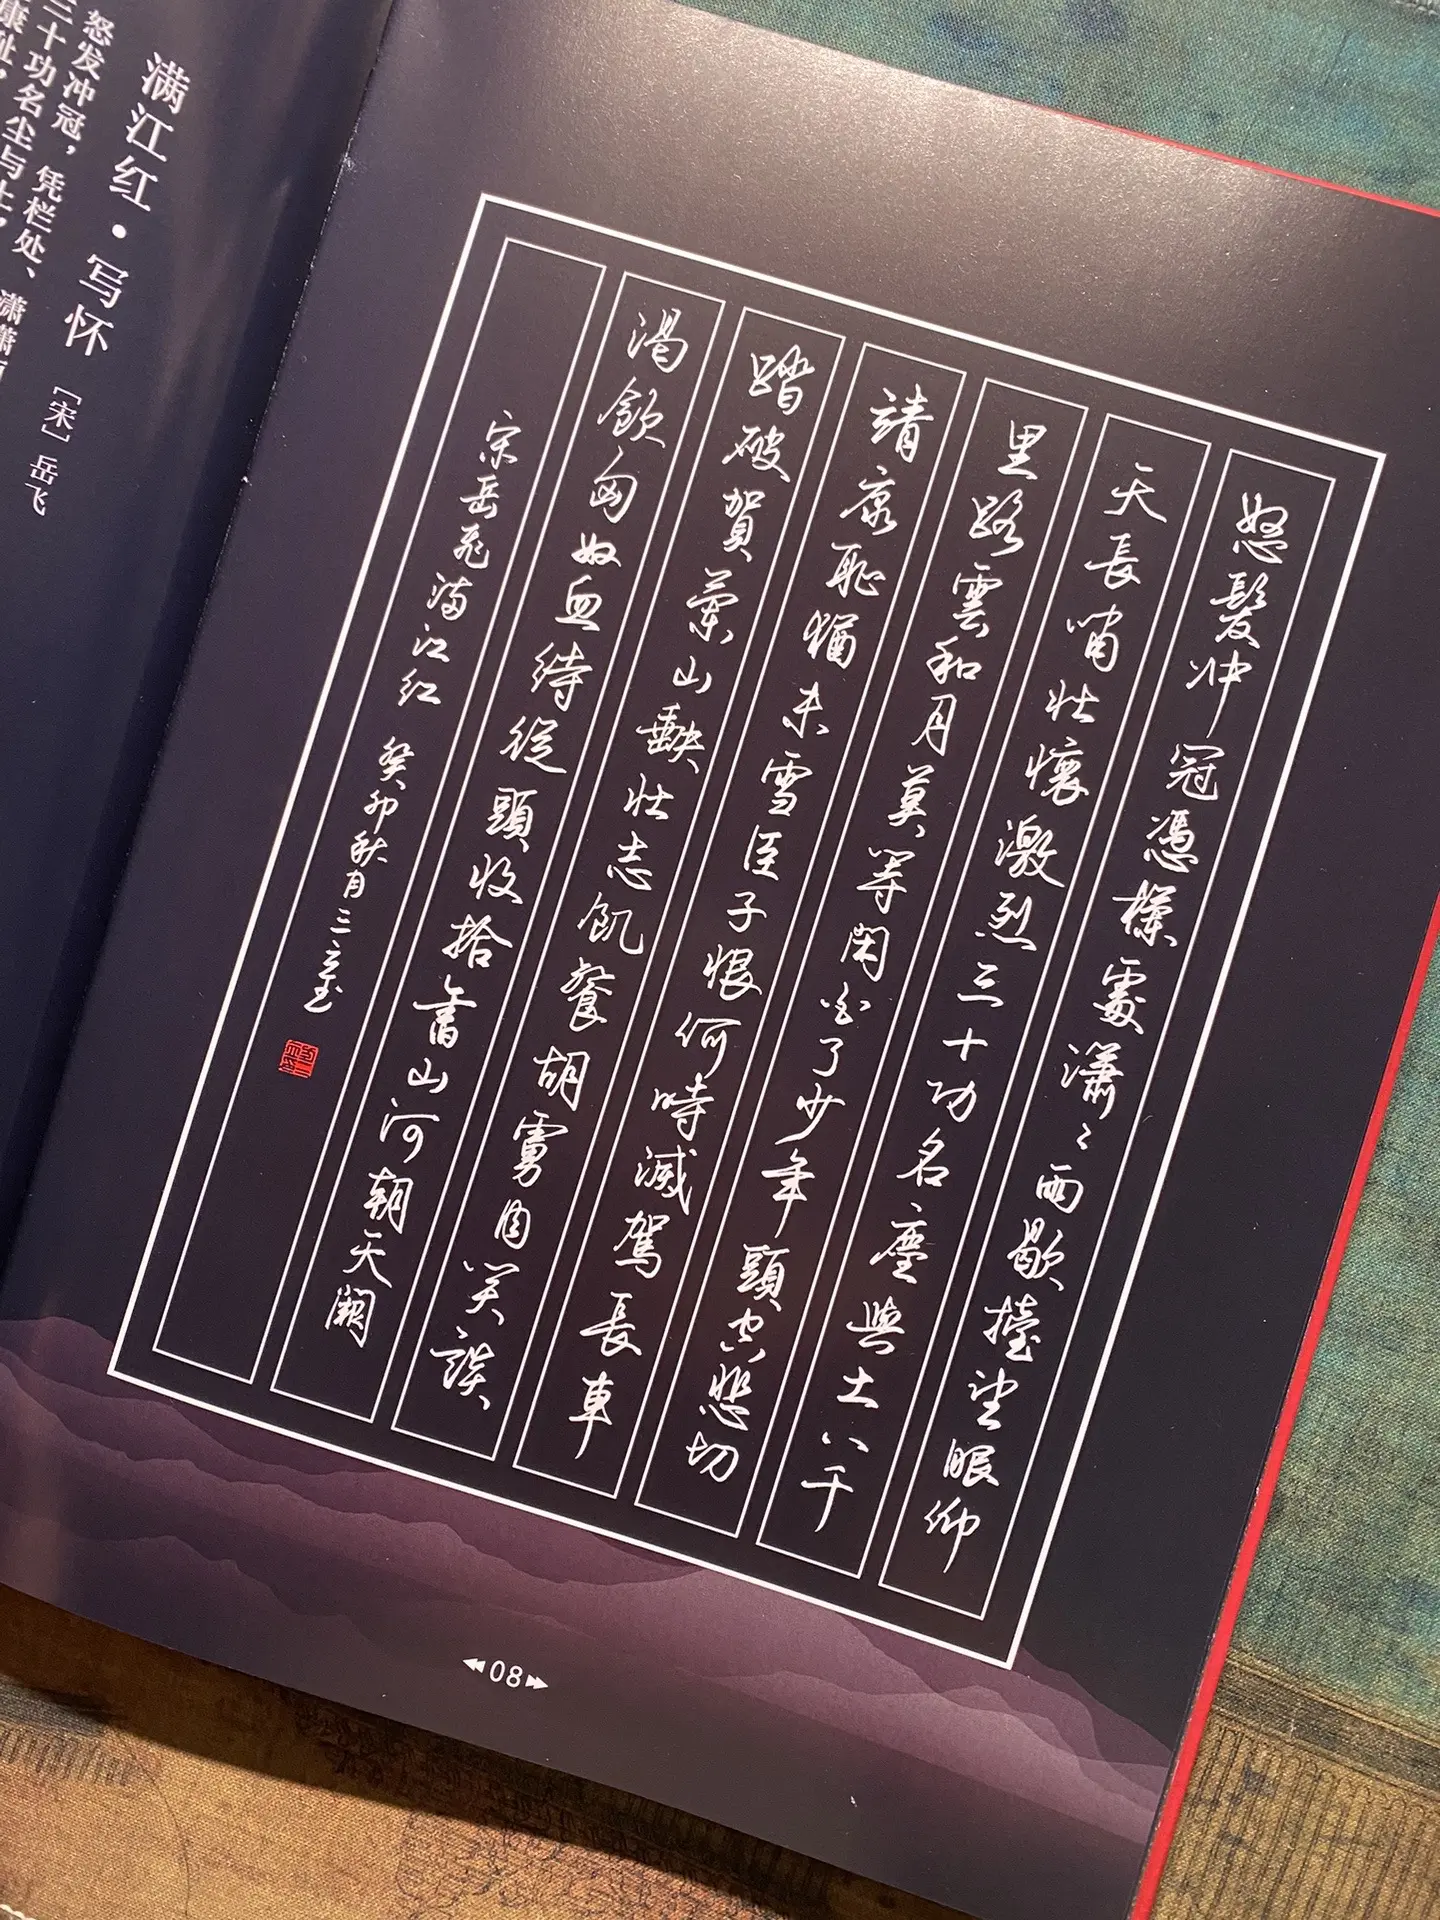 怒髮冲冠憑欄處瀟〻雨歇擡望眼仰
天長嘯壯懷激烈三十功名塵與土八千
里路雲和月莫等閑白了少年頭空悲切
靖康恥猶未雪臣子恨何時滅駕長車
踏破賀蘭山缺壯志飢餐胡虜肉笑談
渴飲匈奴血待從頭收拾舊山河朝天闕
宋岳飛滿江红 癸卯秋月三立
满江红·写怀 [宋] 岳飞
怒发冲冠，凭栏处、潇潇
三十功名尘与土，
康耻，
08